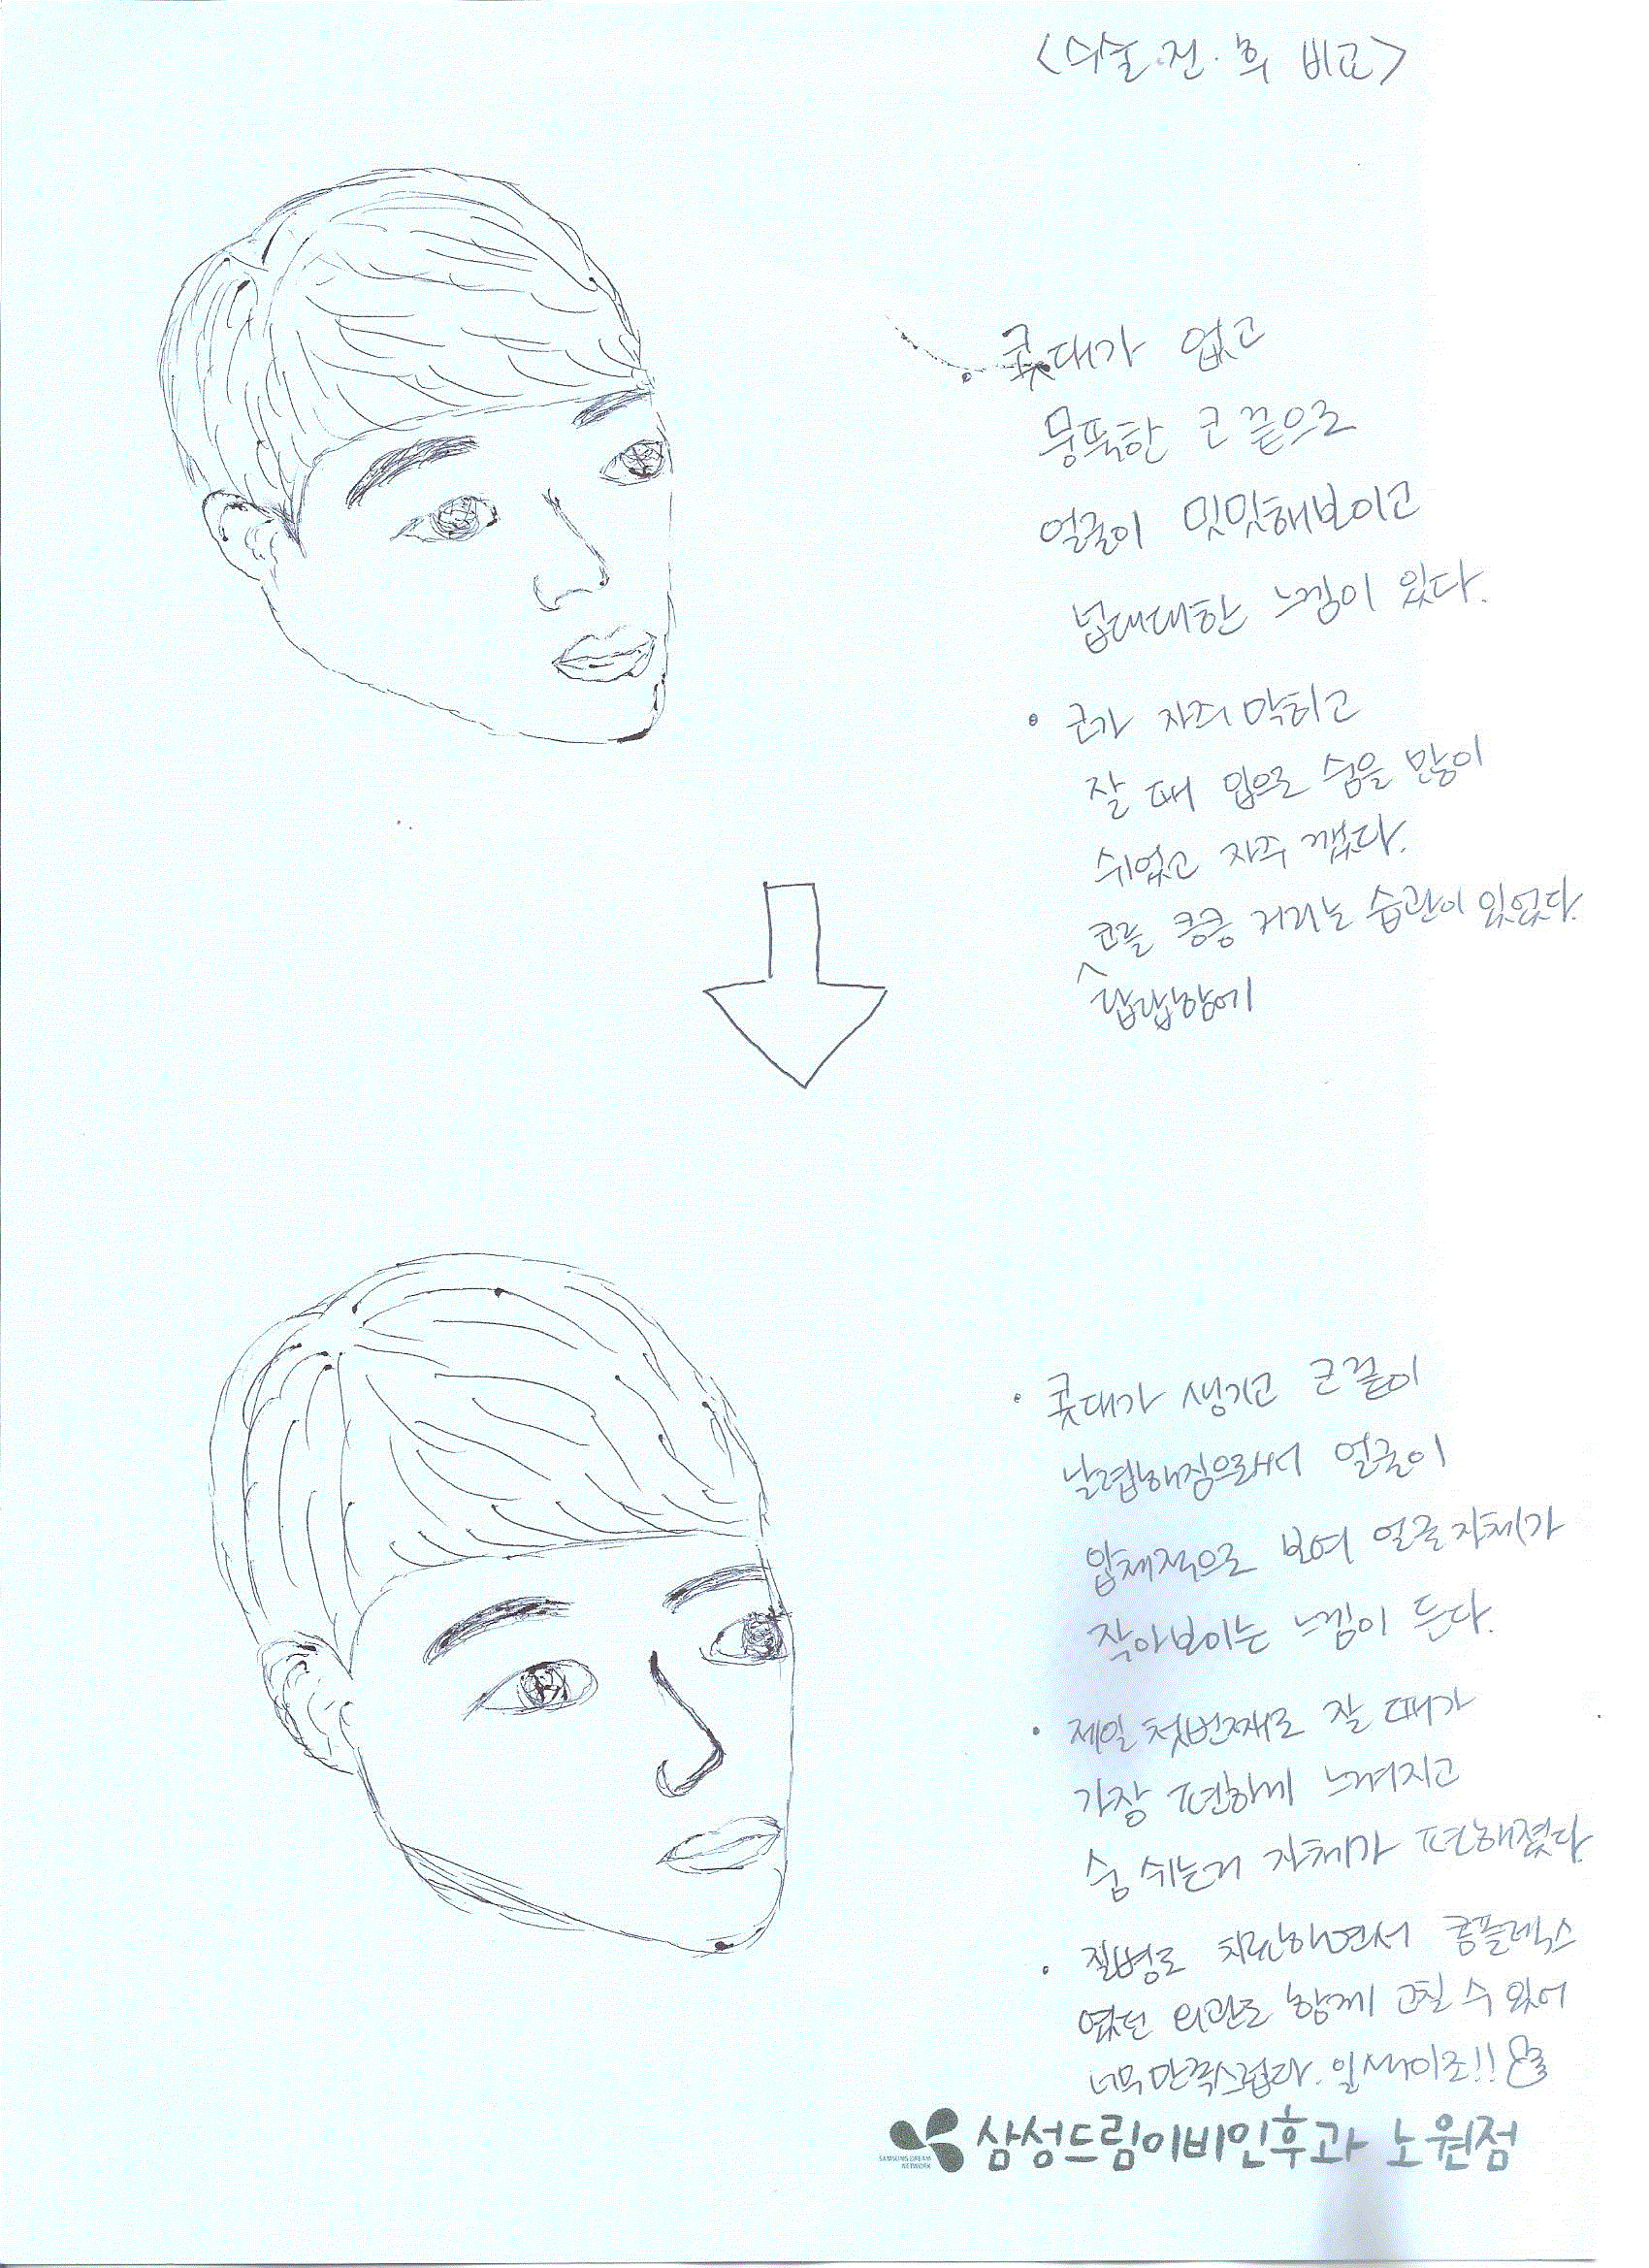 <수술.전.후 비교>
• 콧대가 없고
뭉뚝한 코 끝으로
얼굴이 밋밋해보이고
넙대대한 느낌이 있다.
• 코가 자주 막히고
잘 때 입으로 숨을 많이
쉬었고 자주 깼다.
코를 킁킁 거리는 습관이 있었다.
^답답함에
• 콧대가 생기고 코끝이
날렵해짐으로써 얼굴이
입체적으로 보여 얼굴자체가
작아보이는 느낌이 든다.
• 제일 첫번째로 잘 때가
가장 편하게 느껴지고
숨 쉬는거 자체가 편해졌다
• 질병도 치료하면서 콤플렉스
였던 외관도 함께 고칠 수 있어
너무 만족스럽다. 일석이조!!
SAMSUNG DREAM NETWORK
삼성드림이비인후과 노원점